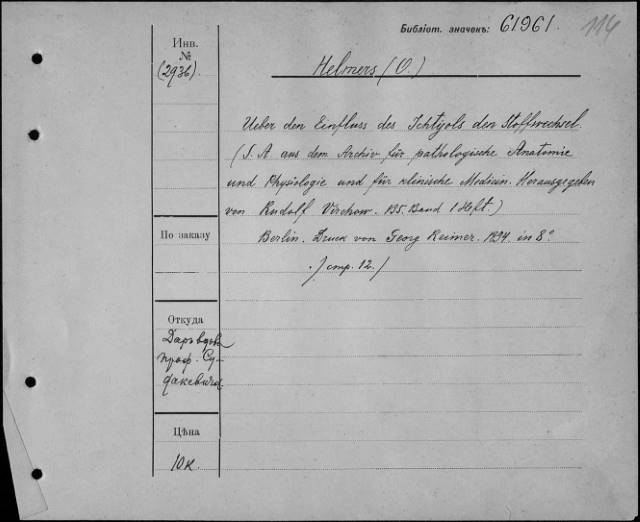 Библіот. значекъ: 61961. 114
Инв.
№
(2936).
Helmers (O.)
Ueber den Einfluss des Ichtyols den Stoffwechsel.
(S. A aus dem Archiv für pathologische Anatomie
und Physiologie und für klinische Medicin. Herausgegeben
von Rudolf Virchow. 135. Band 1 Heft.)
Berlin. Druck von Georg Reimer. 1894. in 8°
/стр. 12./
По заказу
Откуда
Даръ вдовы
проф. Су-
дакевича.
Цѣна
10 к.